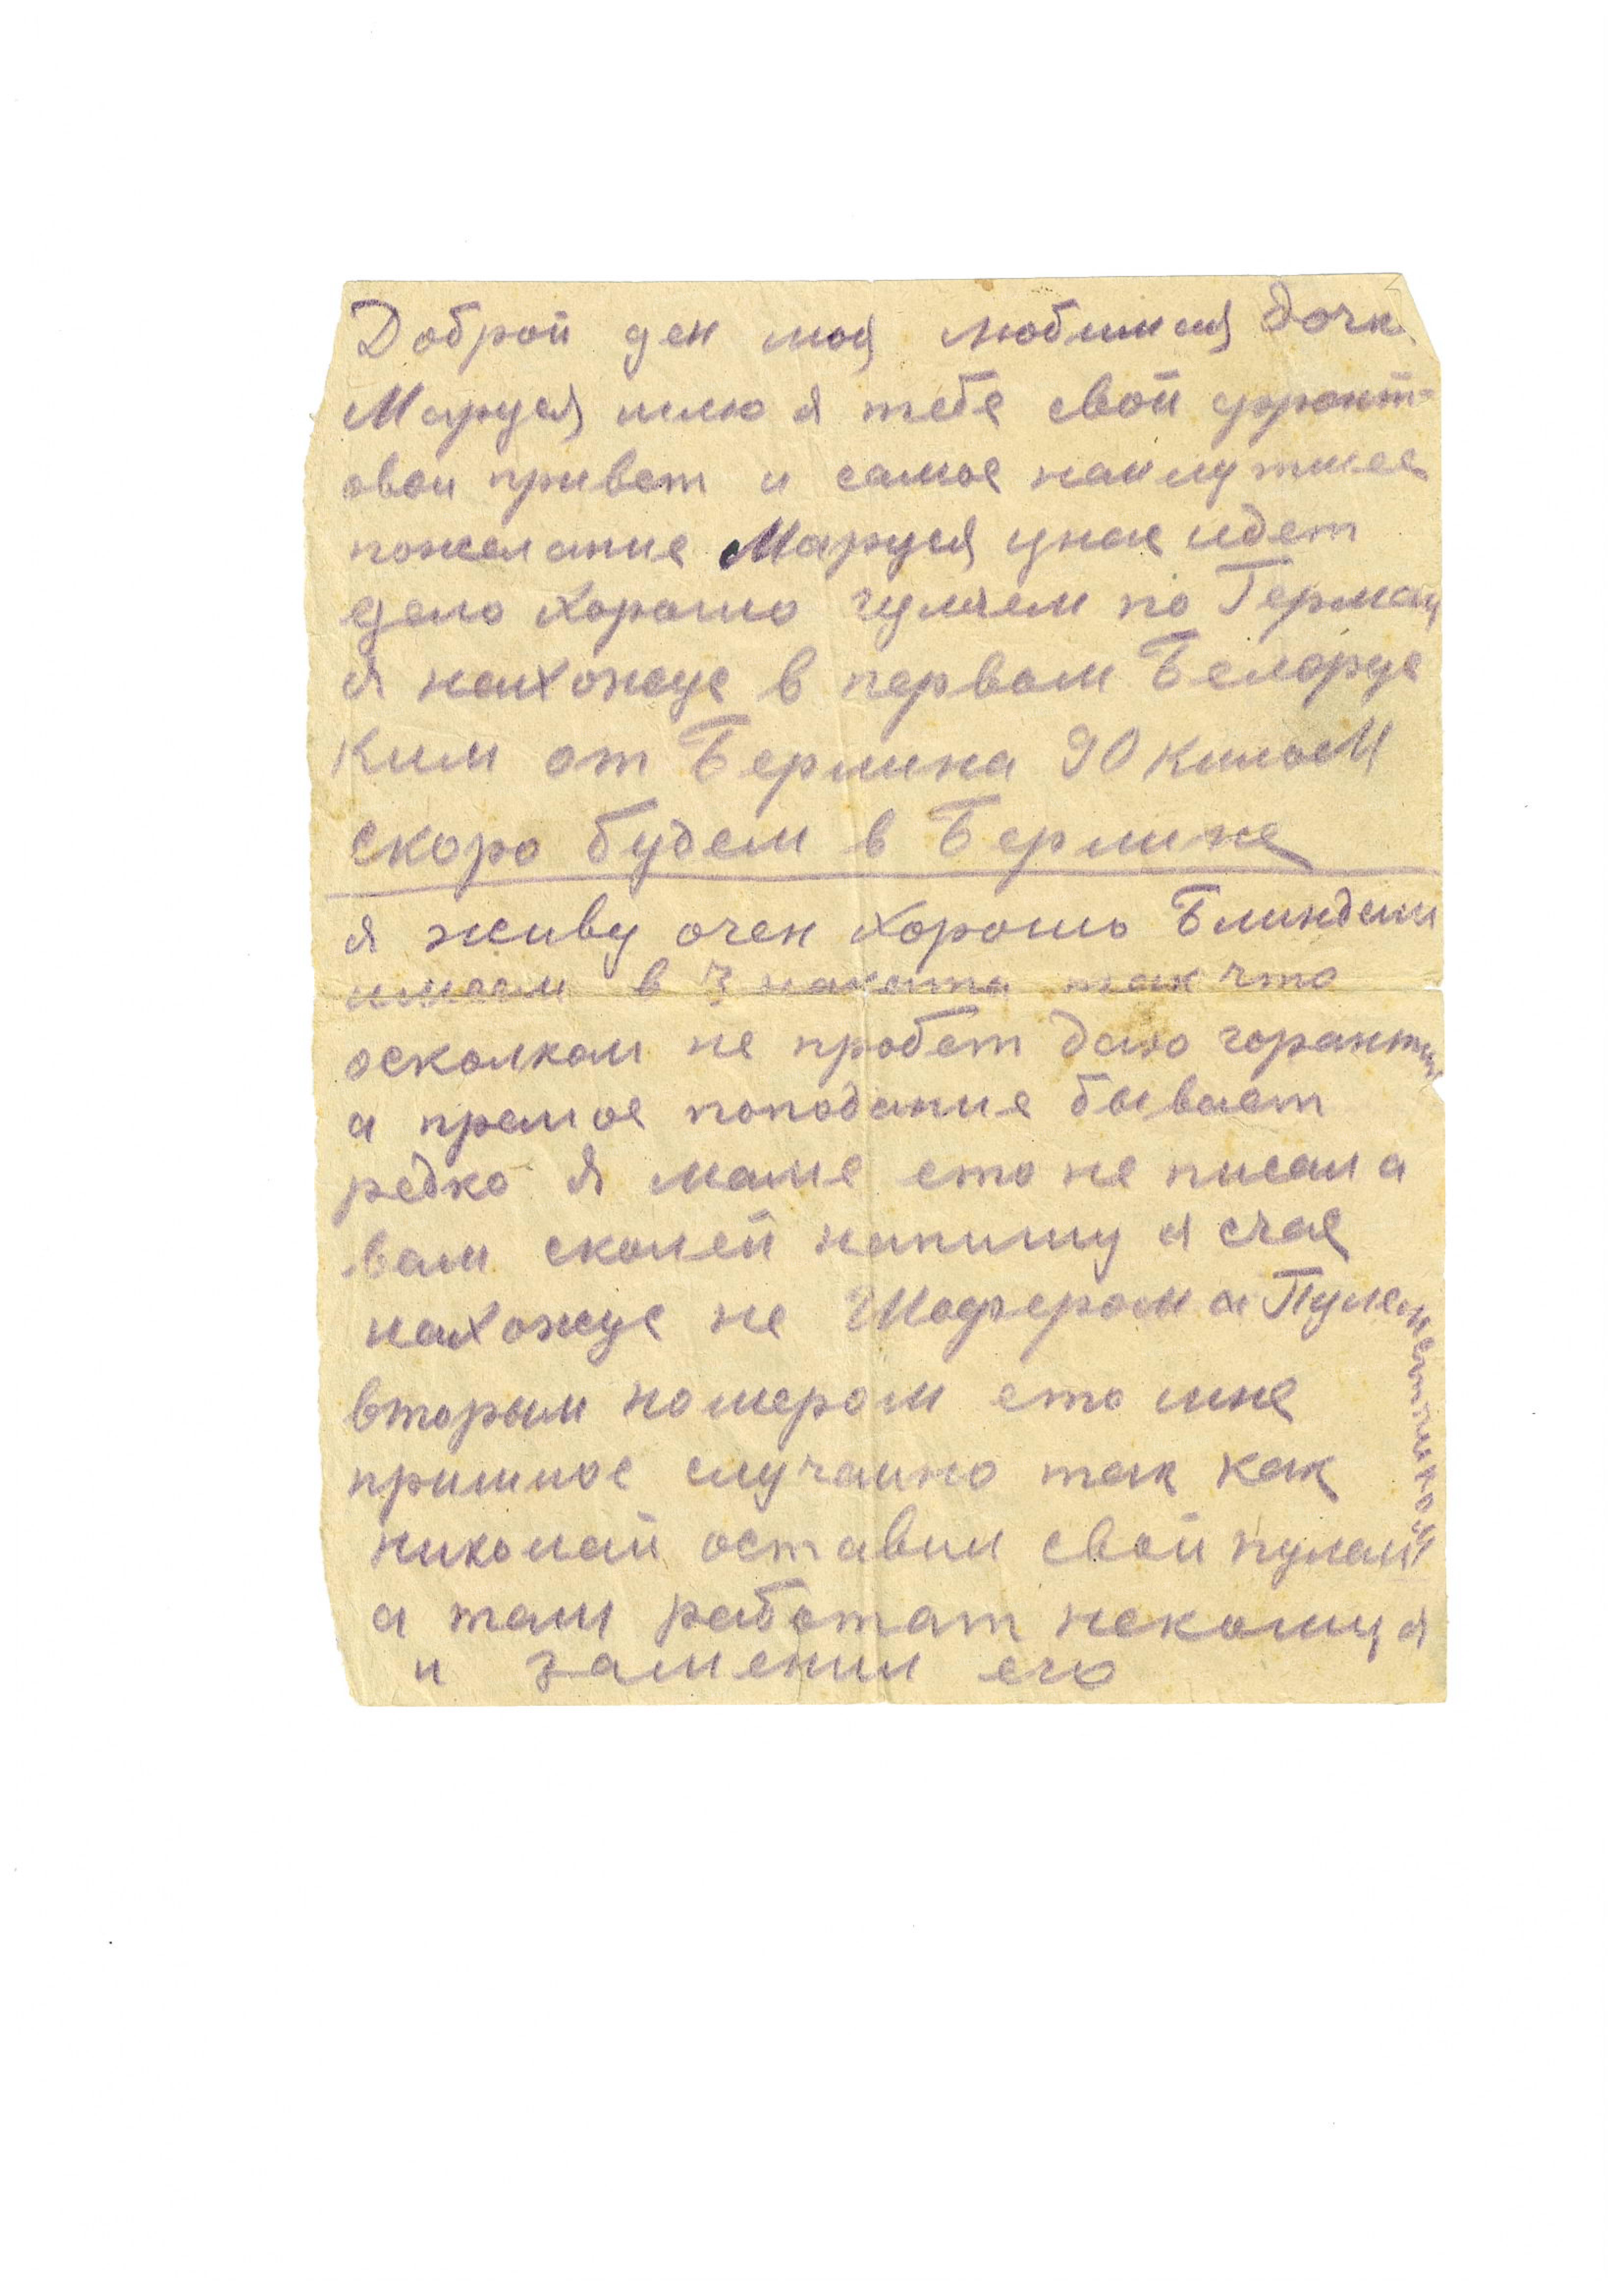 Доброй ден моя любимая дочк
Маруся шлю я тебе свой фронт-
овой привет и самое наилутшее
пожелание Маруся унас идет
дело хорошо гуляем по Герман
я нахожус в первом Белорус
ким от Берлина 90 килом
скоро будем в Берлине
я живу очен хорошо Блиндаш
имеем в 3 наката так что
осколком не пробет даю горантию
а прямое попадание бывает
редко я маме ето не писал а
вам сколей напишу я счас
нахожус не Шофером а Пулеметчиком
вторым номером ето мне
пришлос случаино так как
николай оставил свой
а там работат некому я
и заменил его